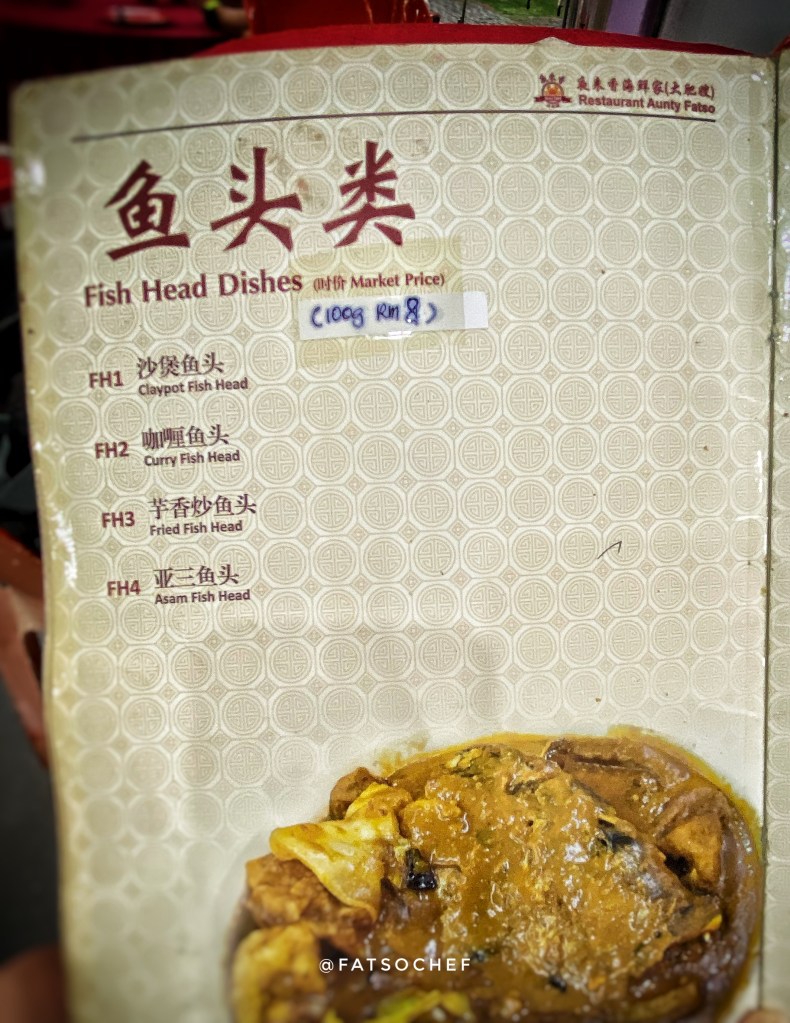 夜来香海鲜家(大肥嫂)
Restaurant Aunty Fatso
鱼头类
Fish Head Dishes (时价 Market Price)
(100g Rm 8)
FH1 沙煲鱼头
Claypot Fish Head
FH2 咖喱鱼头
Curry Fish Head
FH3 芋香炒鱼头
Fried Fish Head
FH4 亚三鱼头
Asam Fish Head
@FATSOCHEF